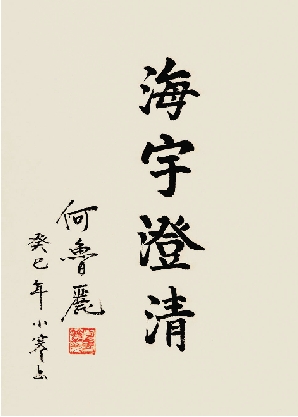 海宇澄清
何魯麗
癸巳年小寒